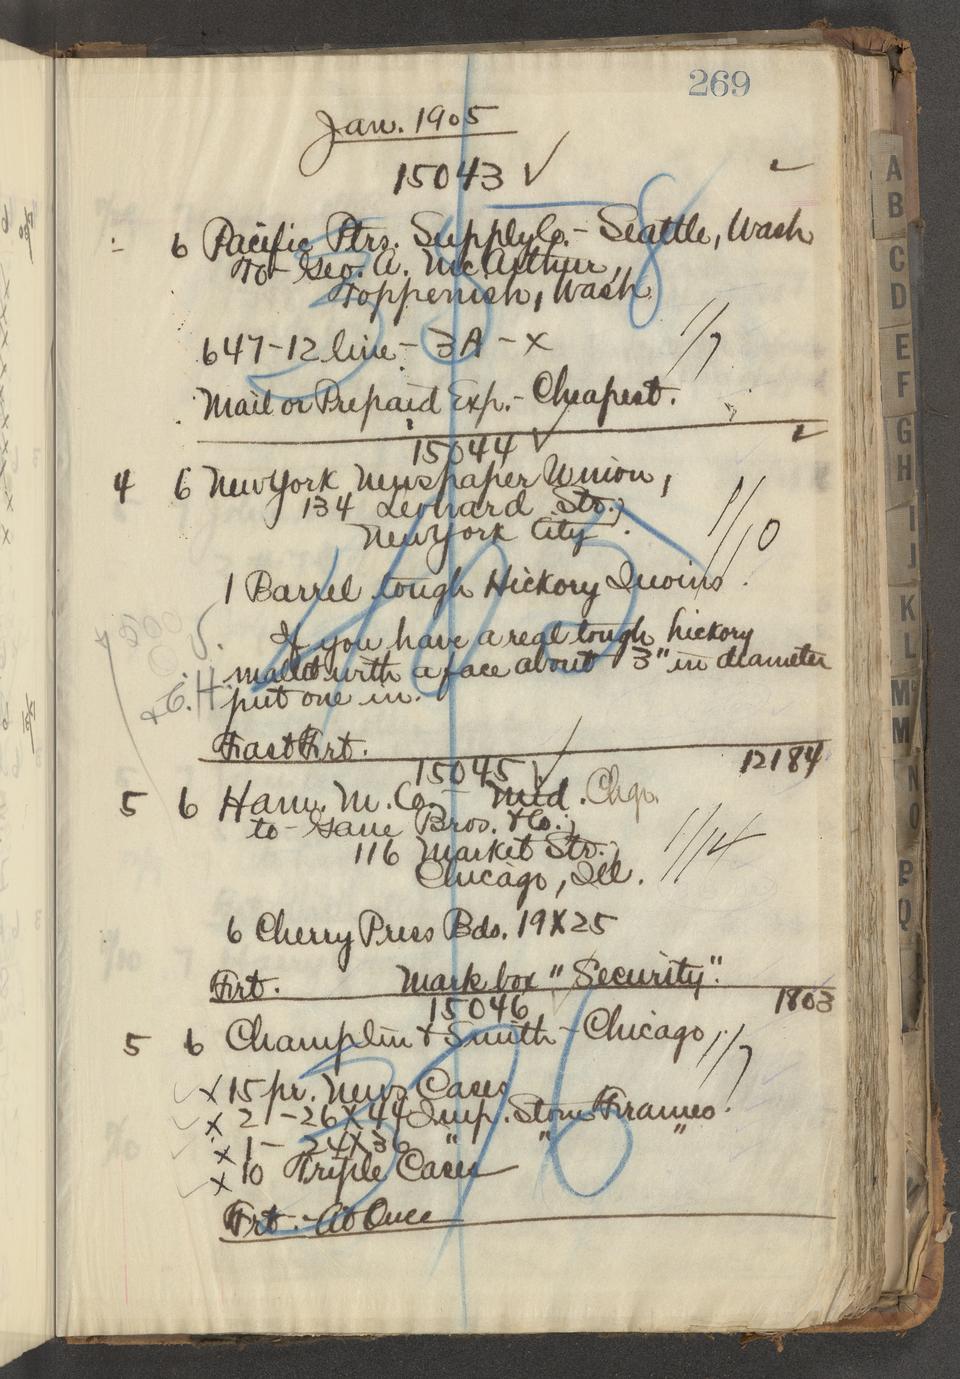 269
Jan. 1905
15043 ✓
6 Pacific Ptrs. Supply Co. - Seattle, Wash
To - Geo. A. McArthur,
Toppenish, Wash
1/7
647-12 line - 3A - X
Mail or Prepaid Exp. - Cheapest.
15044 ✓
4 6 New York Newspaper Union,
134 Leonard Str.,
New York City.
1/10
1 Barrel tough Hickory Quoins.
If you have a regl tough hickory
mallet with a face about 3" in diameter
put one in.
Fast Frt.
12184
15045 ✓
5 6 Ham. M. Co. - Mid. Chgo.
to - Gane Bros. & Co.,
116 Market Str.,
Chicago, Ill.
1/14
6 Cherry Press Bds. 19X25
Frt. Mark box "Security".
1803
15046
5 6 Champlin & Smith - Chicago,
1/7
X 15 pr. News Cases
X 21-26X44 Imp. Stone Frames.
X 1 - 24X36 " " "
X 10 Triple Cases
Frt. - At Once
A
B
C
D
E
F
G
H
I
J
K
L
M
M
N
O
P
Q